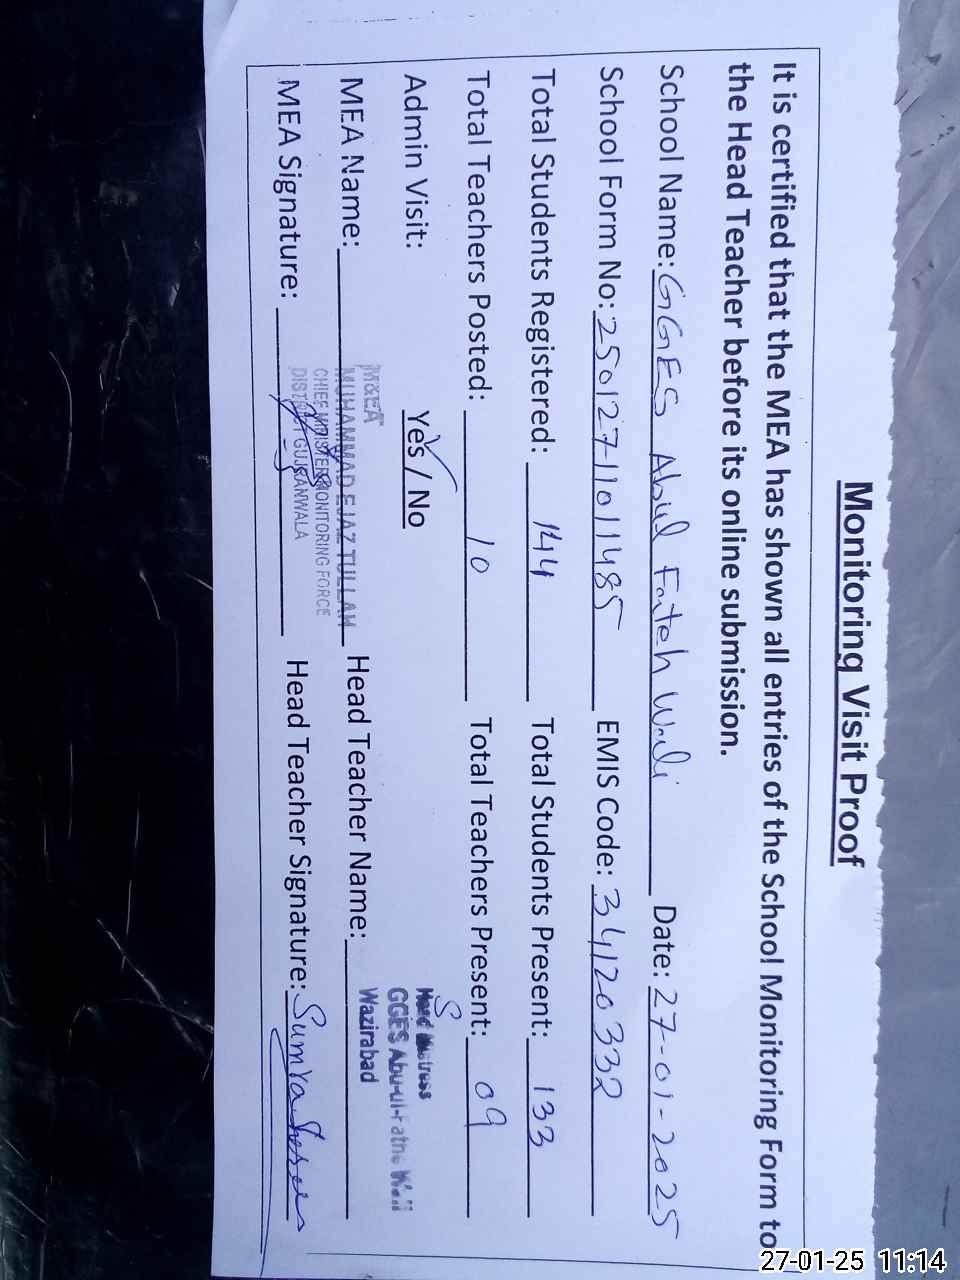 Monitoring Visit Proof
It is certified that the MEA has shown all entries of the School Monitoring Form to
the Head Teacher before its online submission.
School Name: GGES Abul Fateh Wali Date: 27-01-2025
School Form No: 25012711011485 EMIS Code: 34120332
Total Students Registered: 144 Total Students Present: 133
Total Teachers Posted: 10 Total Teachers Present: 09
Admin Visit: Yes / No
Head Mistress
GGES Abu-ul-Fathe Wali
Wazirabad
M&EA
MEA Name: MUHAMMAD EJAZ TULLAH Head Teacher Name:
CHIEF MINISTER MONITORING FORCE
DISTRICT GUJRANWALA
MEA Signature: Head Teacher Signature: Sumra
27-01-25 11:14